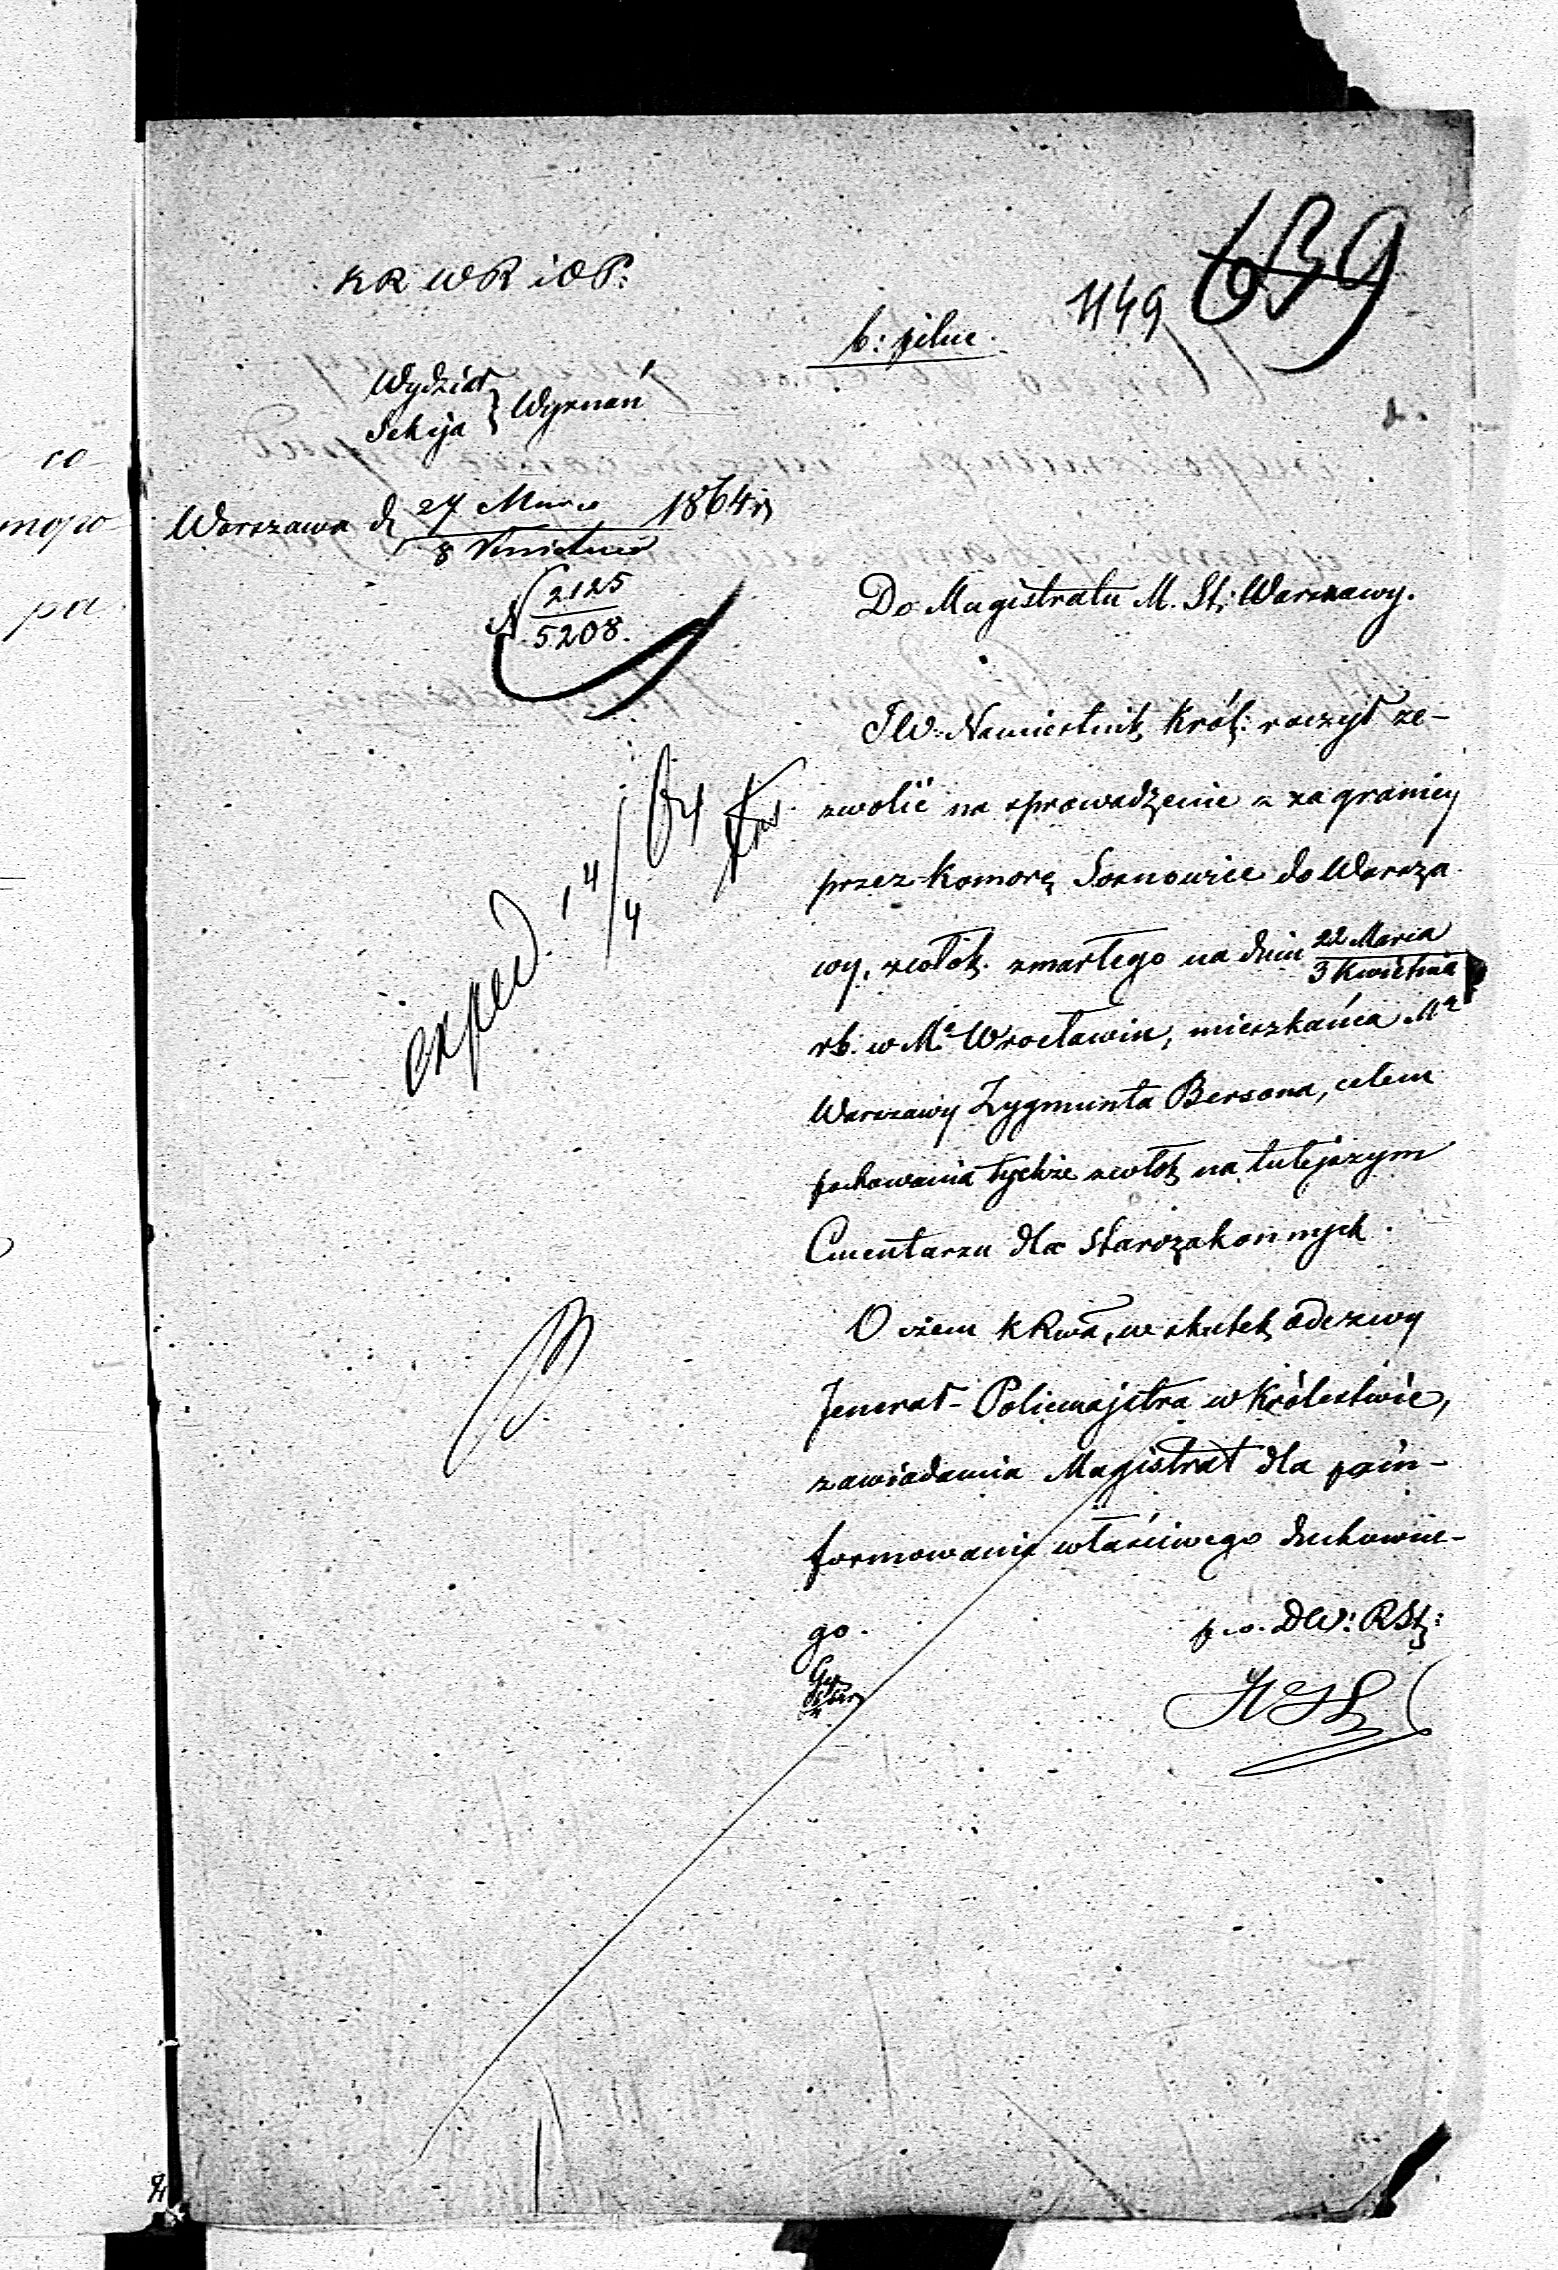 639
1149
KR WR i OP:
b: pilne.
Wydział
Sekcja } Wyznań
Warszawa d. 27 Marca 1864 r.
8 Kwietnia
N 2125
5208.
Do Magistratu M. St: Warszawy.
JW: Namiestnik Król: raczył ze-
zwolić na sprowadzenie z zagranicy
przez Komorę Sosnowice do Warsza
wy, zwłok zmarłego na dniu 22 Marca
3 Kwietnia
rb. w Mie Wrocławiu, mieszkańca Mta
Warszawy Zygmunta Bersona, celem
pochowania tychże zwłok na tutejszym
Cmentarzu dla Starozakonnych.
O czem KRwa, w skutek odezwy
Jenerał-Policmajstra w Królestwie,
zawiadamia Magistrat dla poin-
formowania właściwego duchowne-
go.
p.o. DW: RSt:
exped. 14/4 64
co
mopo
pa